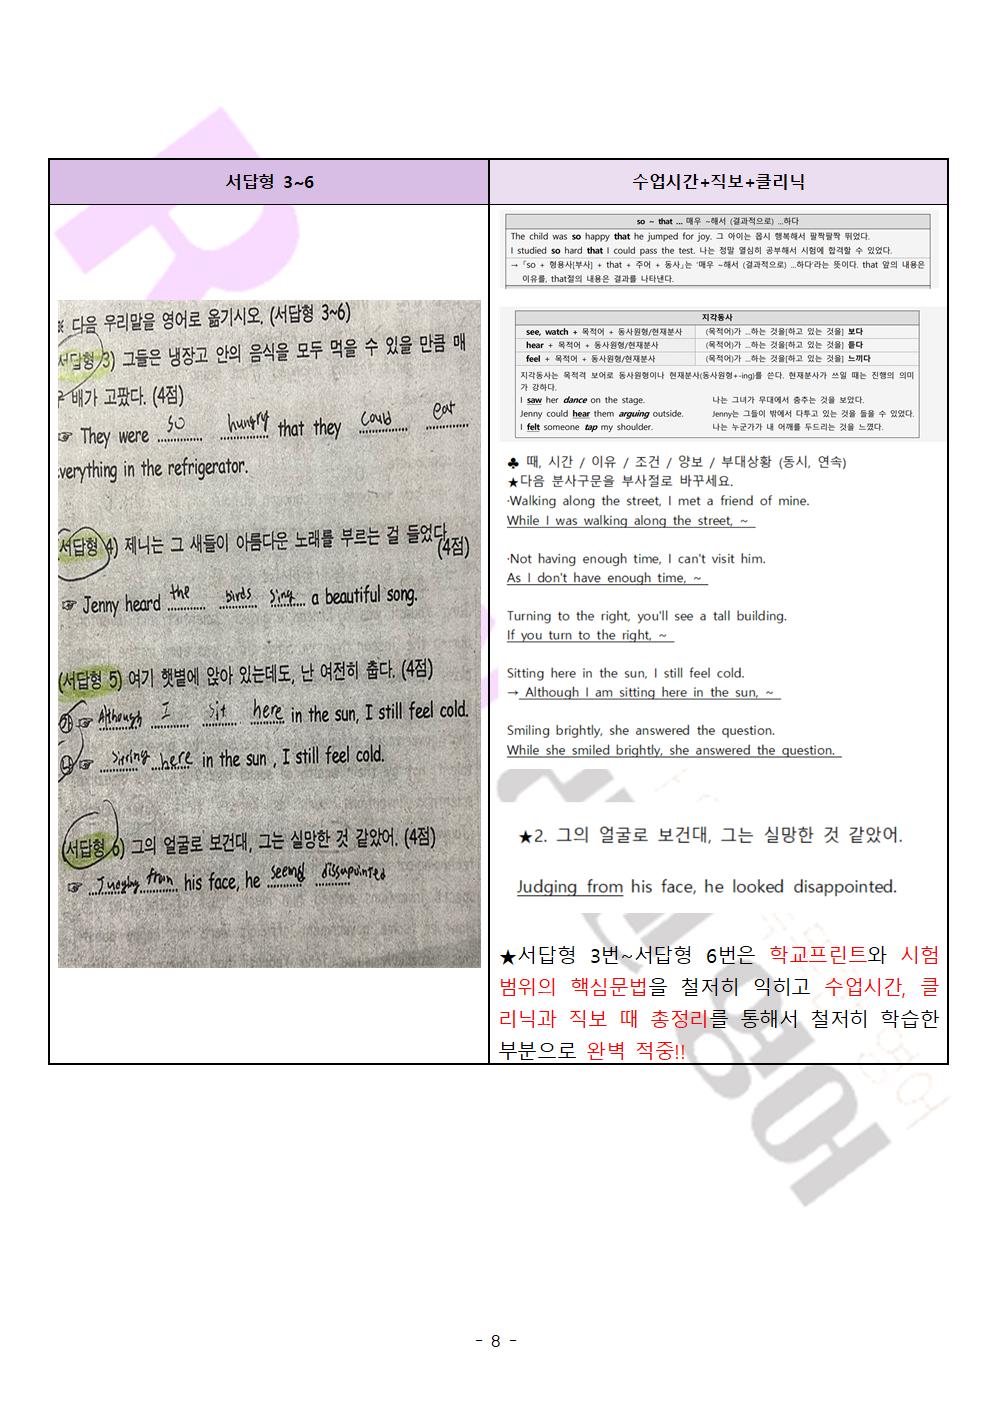 서답형 3~6
※ 다음 우리말을 영어로 옮기시오. (서답형 3~6)
서답형 3) 그들은 냉장고 안의 음식을 모두 먹을 수 있을 만큼 매
우 배가 고팠다. (4점)
☞ They were so hungry that they could eat
everything in the refrigerator.
(서답형 4) 제니는 그 새들이 아름다운 노래를 부르는 걸 들었다.
(4점)
☞ Jenny heard the birds sing a beautiful song.
(서답형 5) 여기 햇볕에 앉아 있는데도, 난 여전히 춥다. (4점)
㉮ ☞ Although I sit here in the sun, I still feel cold.
㉯ ☞ sitting here in the sun , I still feel cold.
(서답형 6) 그의 얼굴로 보건대, 그는 실망한 것 같았어. (4점)
☞ Judging from his face, he seemed dissapointed
수업시간+직보+클리닉
so ~ that ... 매우 ~해서 (결과적으로) ...하다
The child was so happy that he jumped for joy. 그 아이는 몹시 행복해서 팔짝팔짝 뛰었다.
I studied so hard that I could pass the test. 나는 정말 열심히 공부해서 시험에 합격할 수 있었다.
→ 「so + 형용사[부사] + that + 주어 + 동사」는 '매우 ~해서 (결과적으로) ...하다'라는 뜻이다. that 앞의 내용은
이유를, that절의 내용은 결과를 나타낸다.
지각동사
see, watch + 목적어 + 동사원형/현재분사 (목적어)가 ...하는 것을[하고 있는 것을] 보다
hear + 목적어 + 동사원형/현재분사 (목적어)가 ...하는 것을[하고 있는 것을] 듣다
feel + 목적어 + 동사원형/현재분사 (목적어)가 ...하는 것을[하고 있는 것을] 느끼다
지각동사는 목적격 보어로 동사원형이나 현재분사(동사원형+-ing)를 쓴다. 현재분사가 쓰일 때는 진행의 의미
가 강하다.
I saw her dance on the stage. 나는 그녀가 무대에서 춤추는 것을 보았다.
Jenny could hear them arguing outside. Jenny는 그들이 밖에서 다투고 있는 것을 들을 수 있었다.
I felt someone tap my shoulder. 나는 누군가가 내 어깨를 두드리는 것을 느꼈다.
♣ 때, 시간 / 이유 / 조건 / 양보 / 부대상황 (동시, 연속)
★다음 분사구문을 부사절로 바꾸세요.
·Walking along the street, I met a friend of mine.
While I was walking along the street, ~
·Not having enough time, I can't visit him.
As I don't have enough time, ~
Turning to the right, you'll see a tall building.
If you turn to the right, ~
Sitting here in the sun, I still feel cold.
→ Although I am sitting here in the sun, ~
Smiling brightly, she answered the question.
While she smiled brightly, she answered the question.
★2. 그의 얼굴로 보건대, 그는 실망한 것 같았어.
Judging from his face, he looked disappointed.
★서답형 3번~서답형 6번은 학교프린트와 시험
범위의 핵심문법을 철저히 익히고 수업시간, 클
리닉과 직보 때 총정리를 통해서 철저히 학습한
부분으로 완벽 적중!!
영어
- 8 -